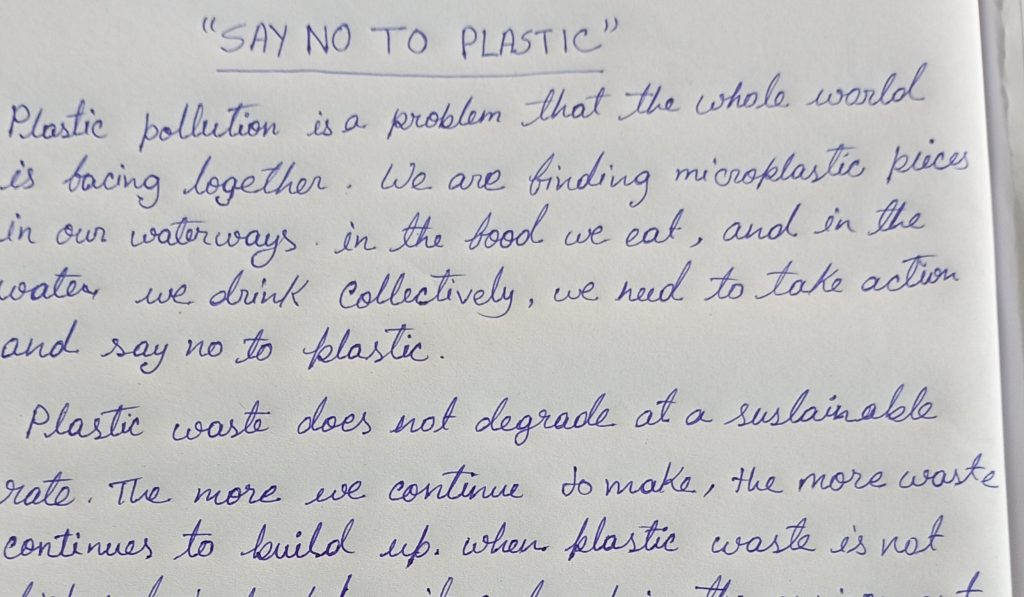 "SAY NO TO PLASTIC"
Plastic pollution is a problem that the whole world
is facing together. We are finding microplastic pieces
in our waterways. in the food we eat, and in the
water we drink Collectively, we need to take action
and say no to plastic.
Plastic waste does not degrade at a sustainable
rate. The more we continue to make, the more waste
continues to build up. when plastic waste is not